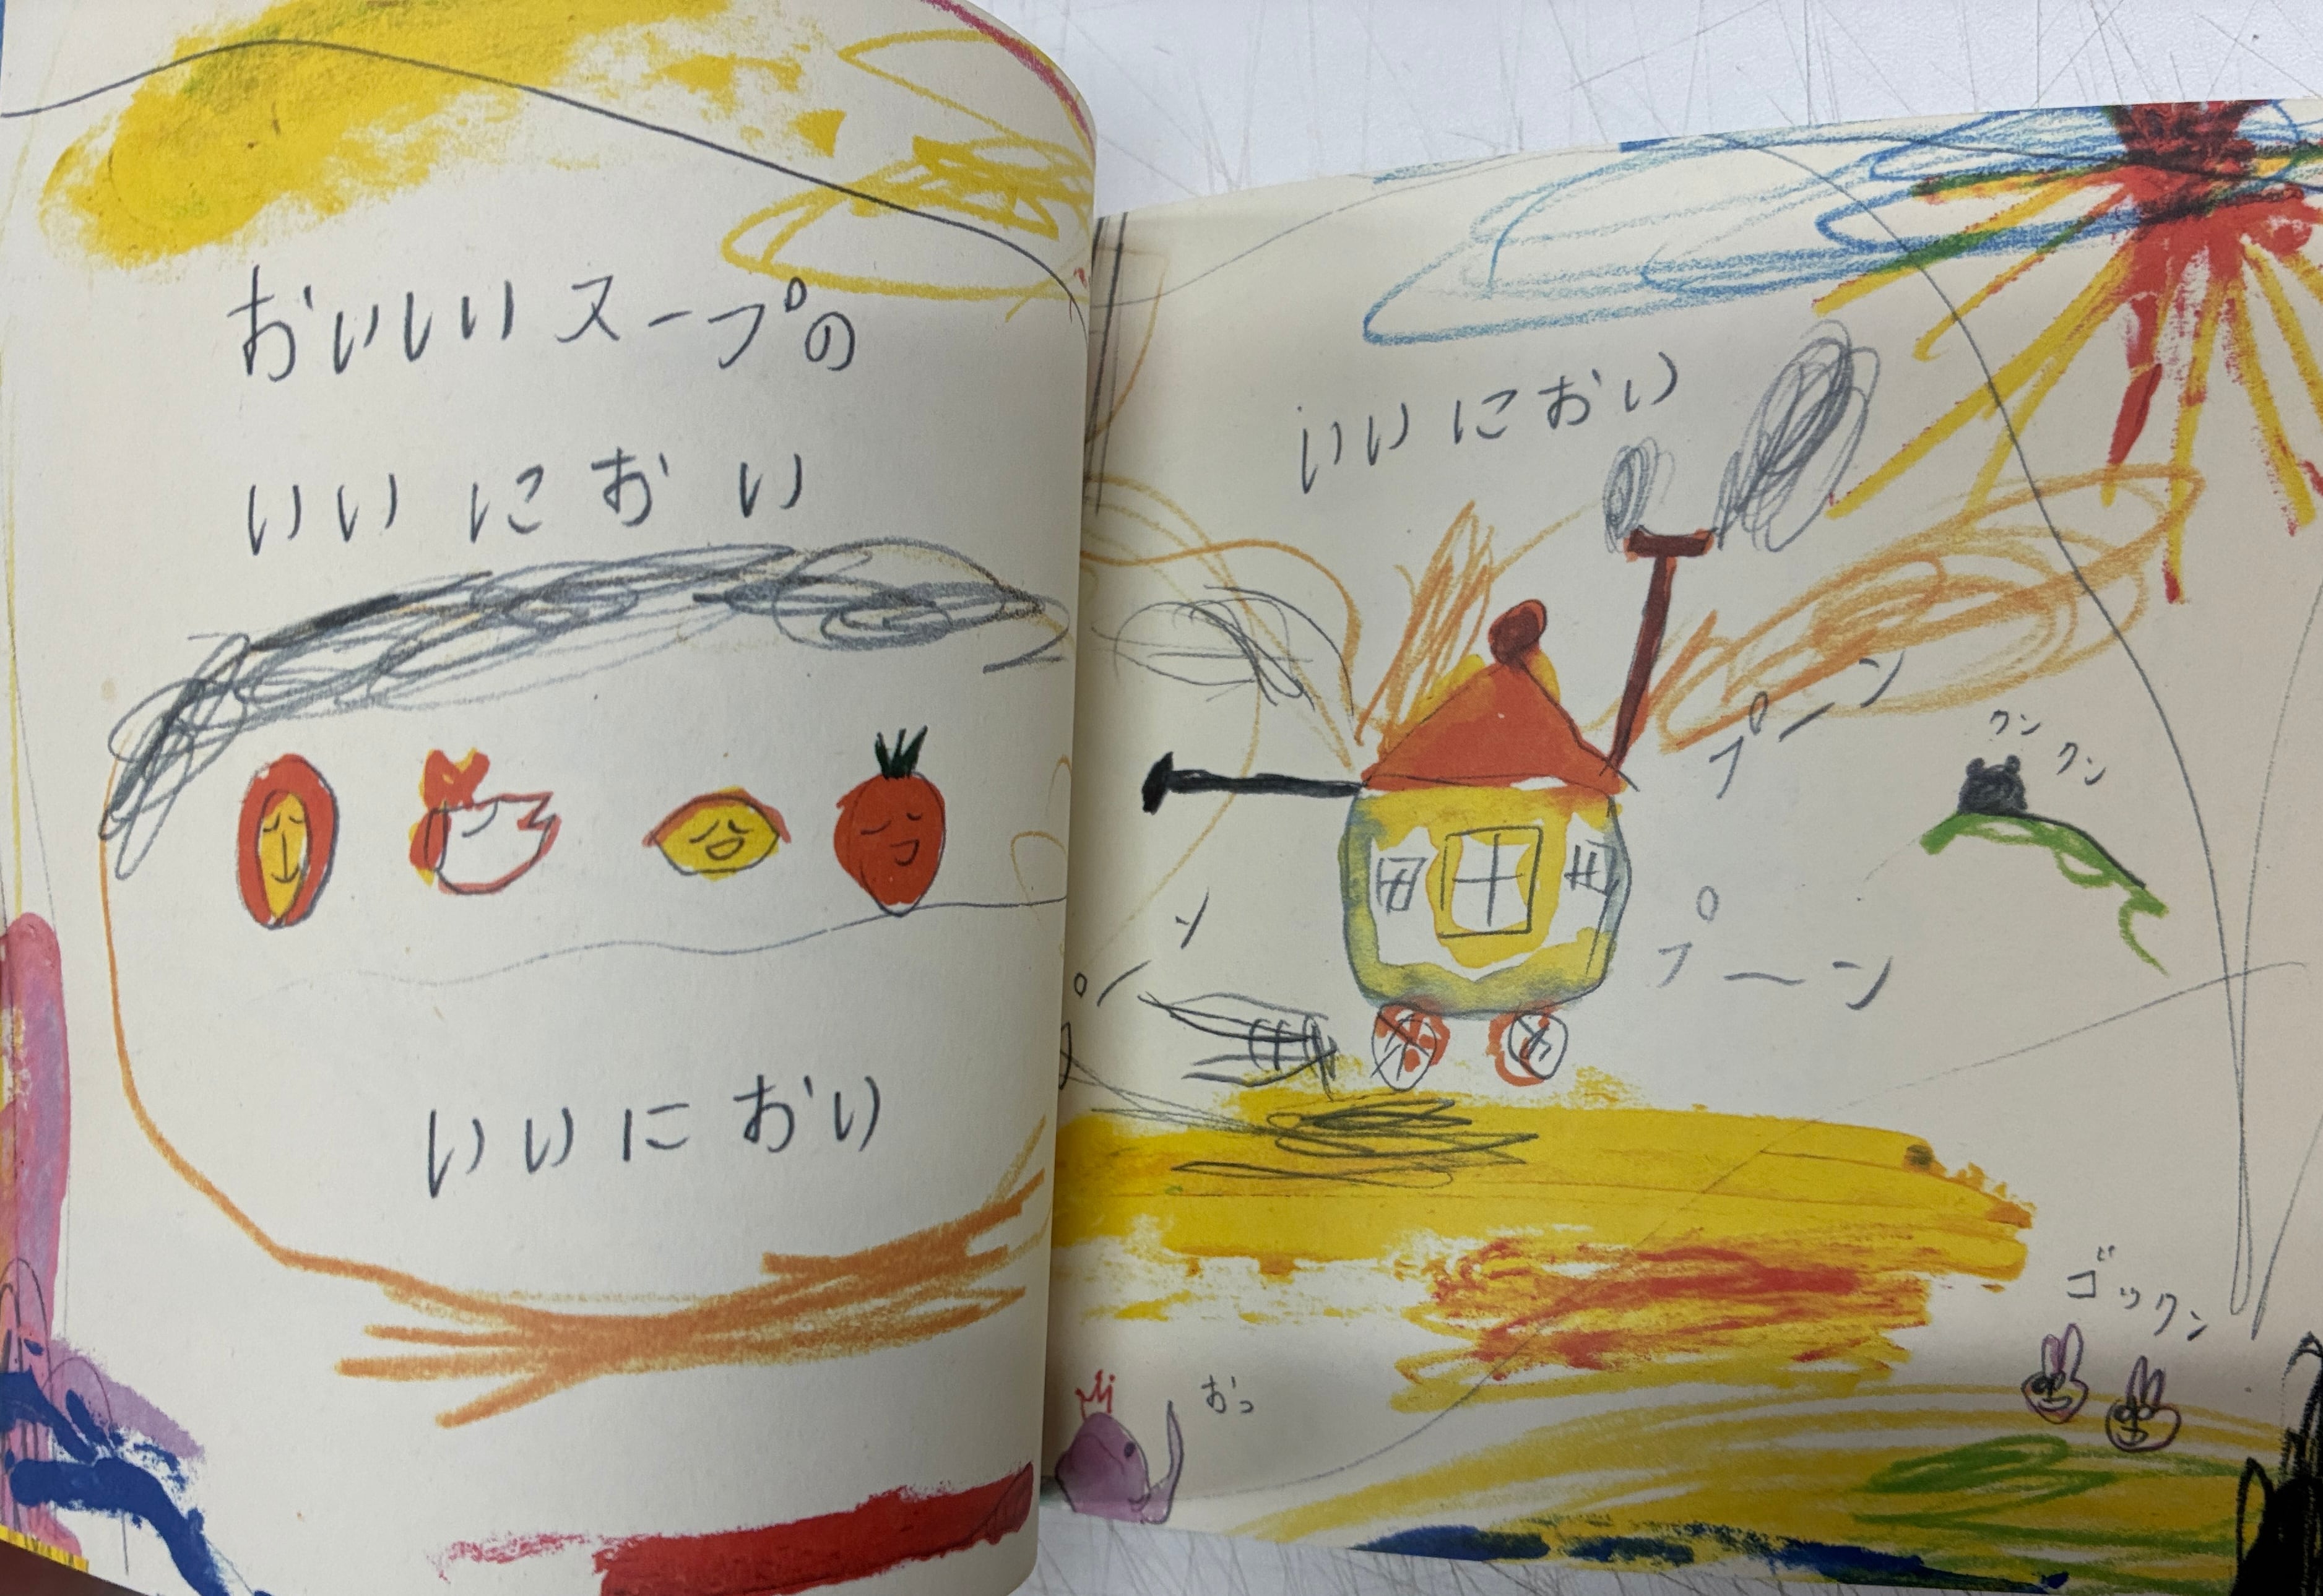 おいしいスープの
いいにおい
いいにおい
いいにおい
プーン
クン
クン
プーン
おっ
ゴックン